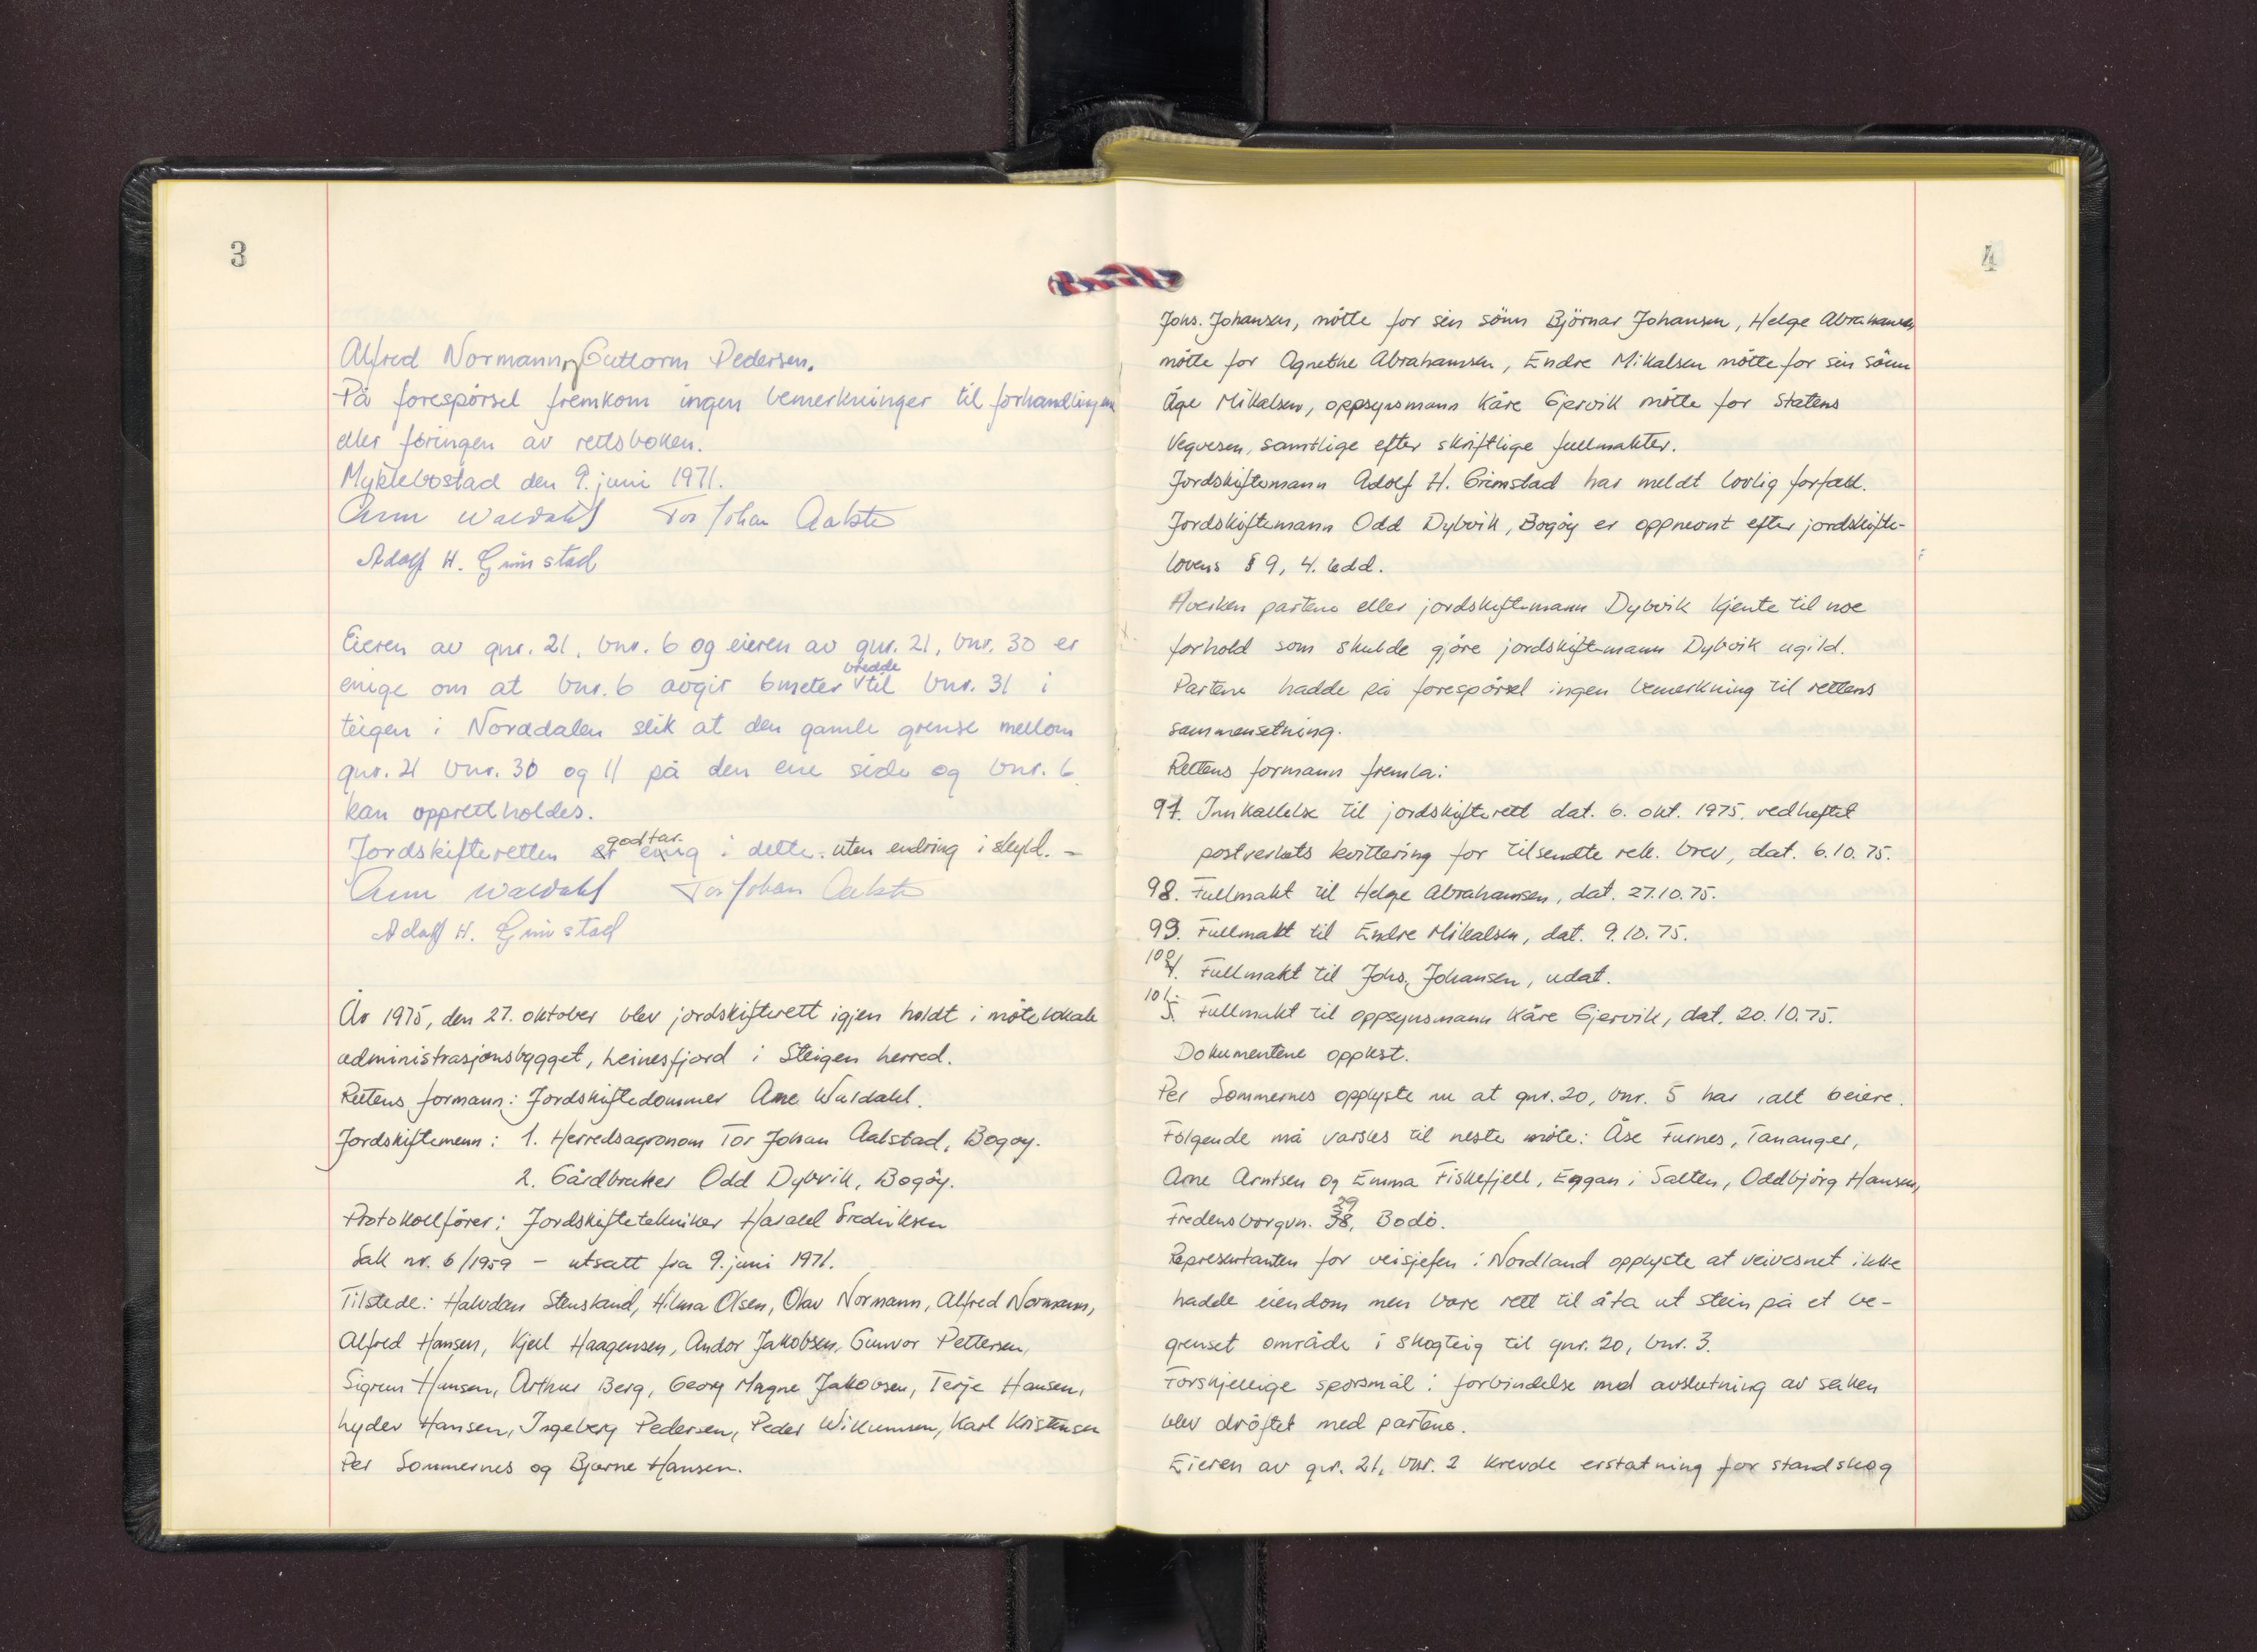 3
Alfred Normann, Guttorm Pedersen.
På forespörsel fremkom ingen bemerkninger til forhandlingen
eller föringen av rettsboken.
Myklebostad den 9. juni 1971.
Arne Waldahl Tor Johan Aalstad
Adolf H. Grimstad
Eieren av gnr. 21, bnr. 6 og eieren av gnr. 21, bnr. 30 er
bredde
enige om at bnr. 6 avgir 6 meter til bnr. 31 i
teigen i Norddalen slik at den gamle grense mellom
gnr. 21 bnr. 30 og 11 på den ene side og bnr. 6
kan opprettholdes.
godtar
Jordskifteretten er enig i dette. uten endring i skyld. -
Arne Waldahl Tor Johan Aalstad
Adolf H. Grimstad
År 1975, den 27. oktober blev jordskifterett igjen holdt i mötelokale
administrasjonsbygget, Leinesfjord i Steigen herred.
Rettens formann: Jordskiftedommer Arne Waldahl.
Jordskiftemenn: 1. Herredsagronom Tor Johan Aalstad, Bogøy.
2. Gårdbruker Odd Dybvik, Bogöy.
Protokollförer: Jordskiftetekniker Harald Fredriksen
Sak nr. 6/1959 - utsatt fra 9. juni 1971.
Tilstede: Halvdan Stensland, Hilma Olsen, Olav Normann, Alfred Normann,
Alfred Hansen, Kjell Haagensen, Andor Jakobsen, Gunvor Pettersen,
Sigrun Hansen, Arthur Berg, Georg Magne Jakobsen, Terje Hansen,
Lyder Hansen, Ingeberg Pedersen, Peder Wikumsen, Karl Kristensen
Per Sommernes og Bjarne Hansen.
4
Johs. Johansen, mötte for sin sönn Björnar Johansen, Helge Abrahamsen
mötte for Agnethe Abrahamsen, Endre Mikalsen mötte for sin sönn
Åge Mikalsen, oppsynsmann Kåre Gjervik mötte for Statens
Vegvesen, samtlige efter skriftlige fullmakter.
Jordskiftemann Adolf H. Grimstad har meldt lovlig forfall.
Jordskiftemann Odd Dybvik, Bogöy er oppnevnt efter jordskifte-
lovens § 9, 4. ledd.
Hverken partene eller jordskiftemann Dybvik kjente til noe
forhold som skulde gjöre jordskiftemann Dybvik ugild.
Partene hadde på forespörsel ingen bemerkning til rettens
sammensetning.
Rettens formann fremla:
97. Innkallelse til jordskifterett dat. 6. okt. 1975, vedheftet
postverkets kvittering for tilsendte rek. brev, dat. 6.10.75.
98. Fullmakt til Helge Abrahamsen, dat. 27.10.75.
99. Fullmakt til Endre Mikalsen, dat. 9.10.75.
100. Fullmakt til Johs. Johansen, udat.
101. Fullmakt til oppsynsmann Kåre Gjervik, dat. 20.10.75.
Dokumentene opplest.
Per Sommernes opplyste nu at gnr. 20, bnr. 5 har ialt 6 eiere.
Fölgende må varsles til neste möte: Åse Furnes, Tananger,
Arne Arntsen og Emma Fiskefjell, Eggan i Salten, Oddbjörg Hansen,
29
Fredensborgvn. 38, Bodö.
Representanten for veisjefen i Nordland opplyste at veivesnet ikke
hadde eiendom men bare rett til å ta ut stein på et be-
grenset område i skogteig til gnr. 20, bnr. 3.
Forskjellige spörsmål i forbindelse med avslutning av saken
blev dröftet med partene.
Eieren av gnr. 21, bnr. 2 krevde erstatning for standskog